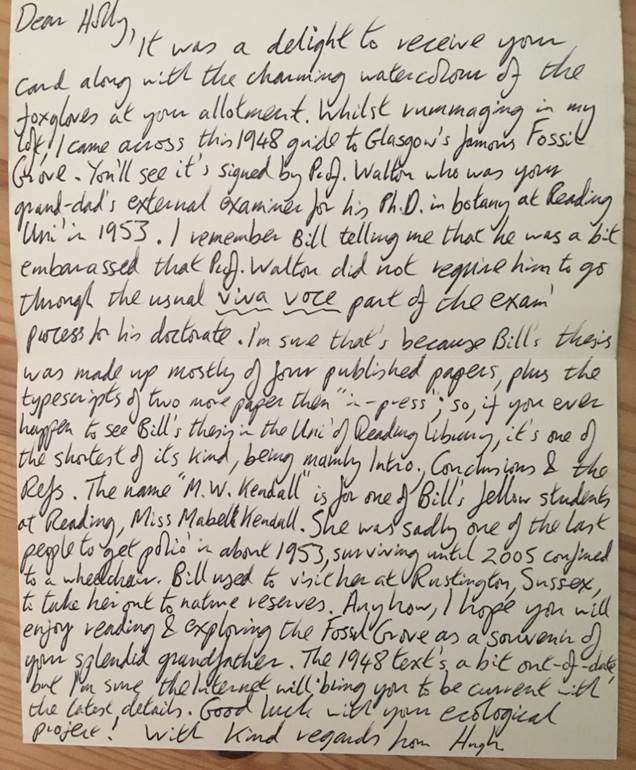 Dear Holly,
It was a delight to receive your
card along with the charming watercolour of the
foxgloves at your allotment. Whilst rummaging in my
loft, I came across this 1948 guide to Glasgow's famous Fossil
Grove. You'll see it's signed by Prof. Walton who was your
grand-dad's external examiner for his Ph.D. in botany at Reading
Uni' in 1953. I remember Bill telling me that he was a bit
embarassed that Prof. Walton did not require him to go
through the usual viva voce part of the exam'
process for his doctorate. I'm sure that's because Bill's thesis
was made up mostly of four published papers, plus the
typescripts of two more paper then "in-press"; so, if you ever
happen to see Bill's thesis in the Uni' of Reading Library, it's one of
the shortest of its kind, being mainly Intro., Conclusions & the
Refs. The name "M.W. Kendall" is for one of Bill's fellow students
at Reading, Miss Mabel Kendall. She was sadly one of the last
people to get polio in about 1953, surviving until 2005 confined
to a wheelchair. Bill used to visit her at Rustington, Sussex,
to take her out to nature reserves. Anyhow, I hope you will
enjoy reading & exploring the Fossil Grove as a souvenir of
your splendid grandfather. The 1948 text's a bit out-of-date,
but I'm sure the Internet will bring you to be current with
the latest details. Good luck with your ecological
project! With kind regards from Hugh